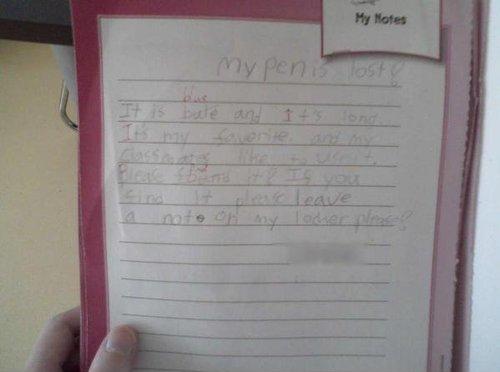 My Notes
My pen is lost?
blue
It is bule and It's long.
It's my favorite. and my
classmates like to use it.
Please found it? If you
find it please leave
a note on my locker please?